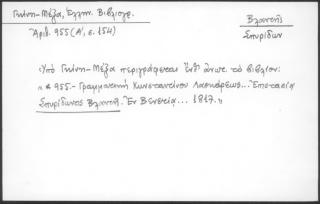 Γκίνη-Μέξα, Ἑλλην. Βιβλιογρ.
Ἀριθ. 955 (Α', σ. 154)
Βλαντῆς
Σπυρίδων
Ὑπὸ Γκίνη-Μέξα περιγράφεται ἐνθ' ἀνωτ. τὸ βιβλίον:
"* 955.- Γραμματικὴ Κωνσταντίνου Λασκάρεως... Ἐπιστασίᾳ
Σπυρίδωνος Βλαντῆ. Ἐν Βενετίᾳ... 1817."